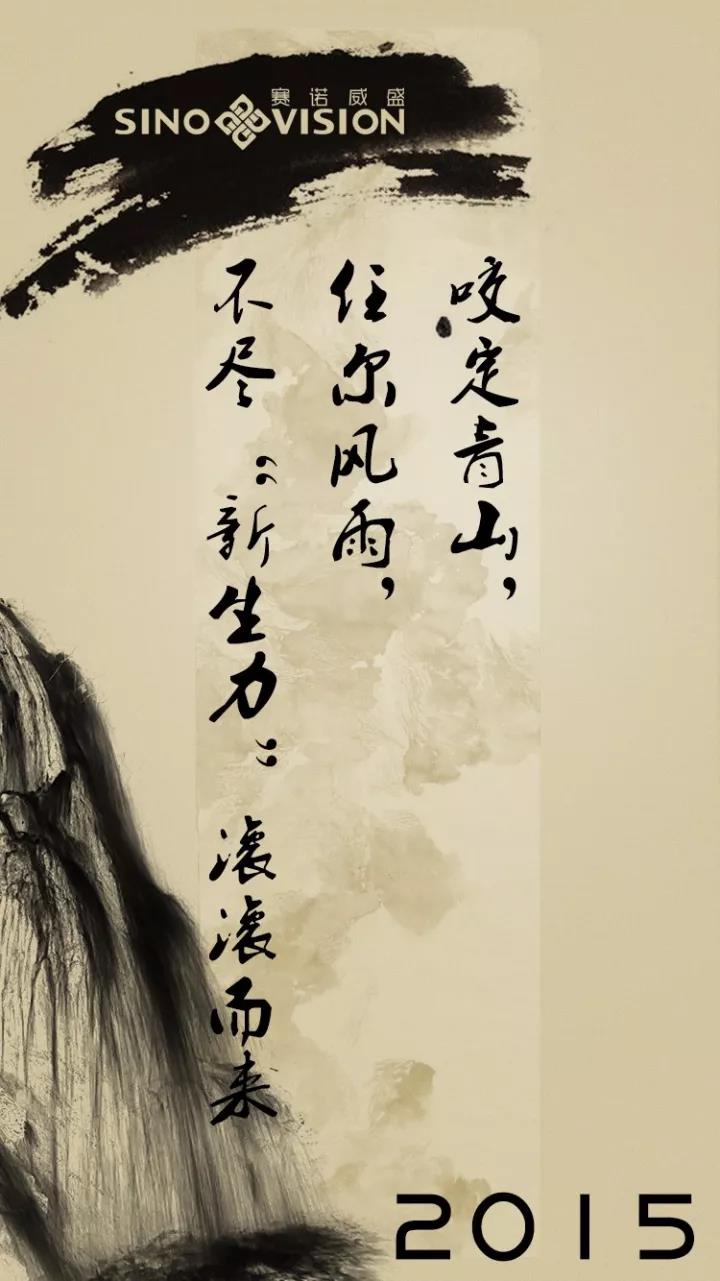 赛诺威盛
SINO VISION
咬定青山，
任尔风雨，
不尽“新生力”滚滚而来
2015